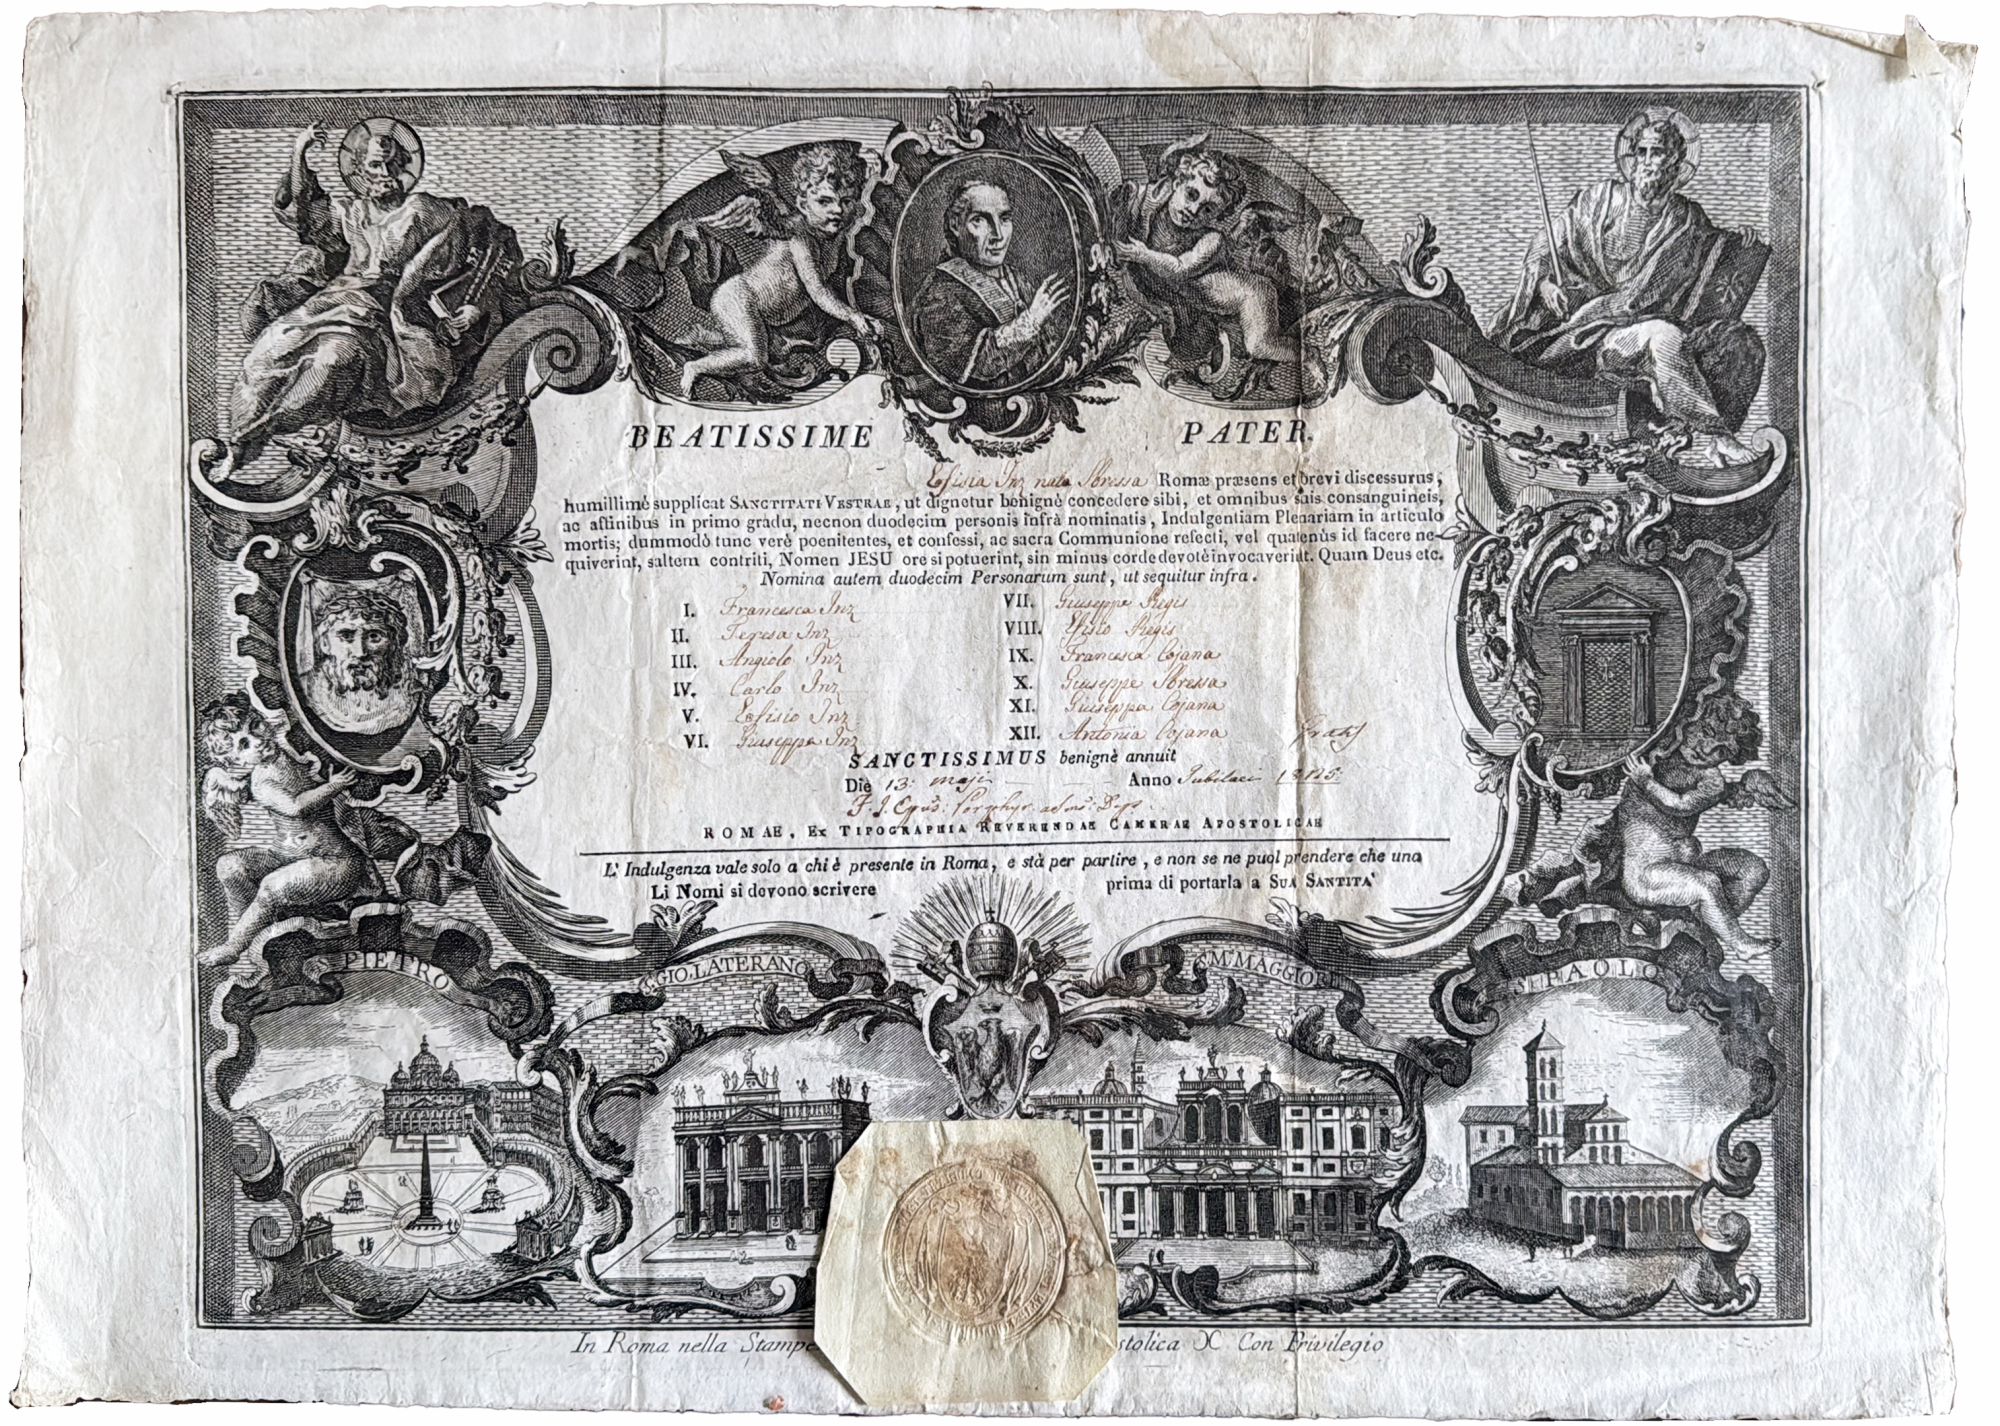 BEATISSIME PATER.
Efisia Inz nata Sbressa Romæ præsens et brevi discessurus,
humillimè supplicat SANCTITATI VESTRAE, ut dignetur benignè concedere sibi, et omnibus suis consanguineis,
ac affinibus in primo gradu, necnon duodecim personis infrà nominatis, Indulgentiam Plenariam in articulo
mortis; dummodò tunc verè poenitentes, et confessi, ac sacra Communione refecti, vel quatenùs id facere ne-
quiverint, saltem contriti, Nomen JESU ore si potuerint, sin minus corde devotè invocaverint. Quam Deus etc.
Nomina autem duodecim Personarum sunt, ut sequitur infra.
I. Francesca Inz
II. Teresa Inz
III. Angiolo Inz
IV. Carlo Inz
V. Eefisio Inz
VI. Giuseppa Inz
VII. Giuseppe Regis
VIII. Efisio Regis
IX. Francesca Cojana
X. Giuseppe Sbressa
XI. Giuseppa Cojana
XII. Antonia Cojana
Gratis
SANCTISSIMUS benignè annuit
Die 13: maji Anno Jubilaei 1825:
ROMAE, Ex TIPOGRAPHIA REVERENDAE CAMERAE APOSTOLICAE
L' Indulgenza vale solo a chi è presente in Roma, e stà per partire, e non se ne puol prendere che una
Li Nomi si devono scrivere prima di portarla a SUA SANTITA'
PIETRO
S. GIO. LATERANO
S. Mª MAGGIORE
S. PAOLO
In Roma nella Stampe stolica Con Privilegio